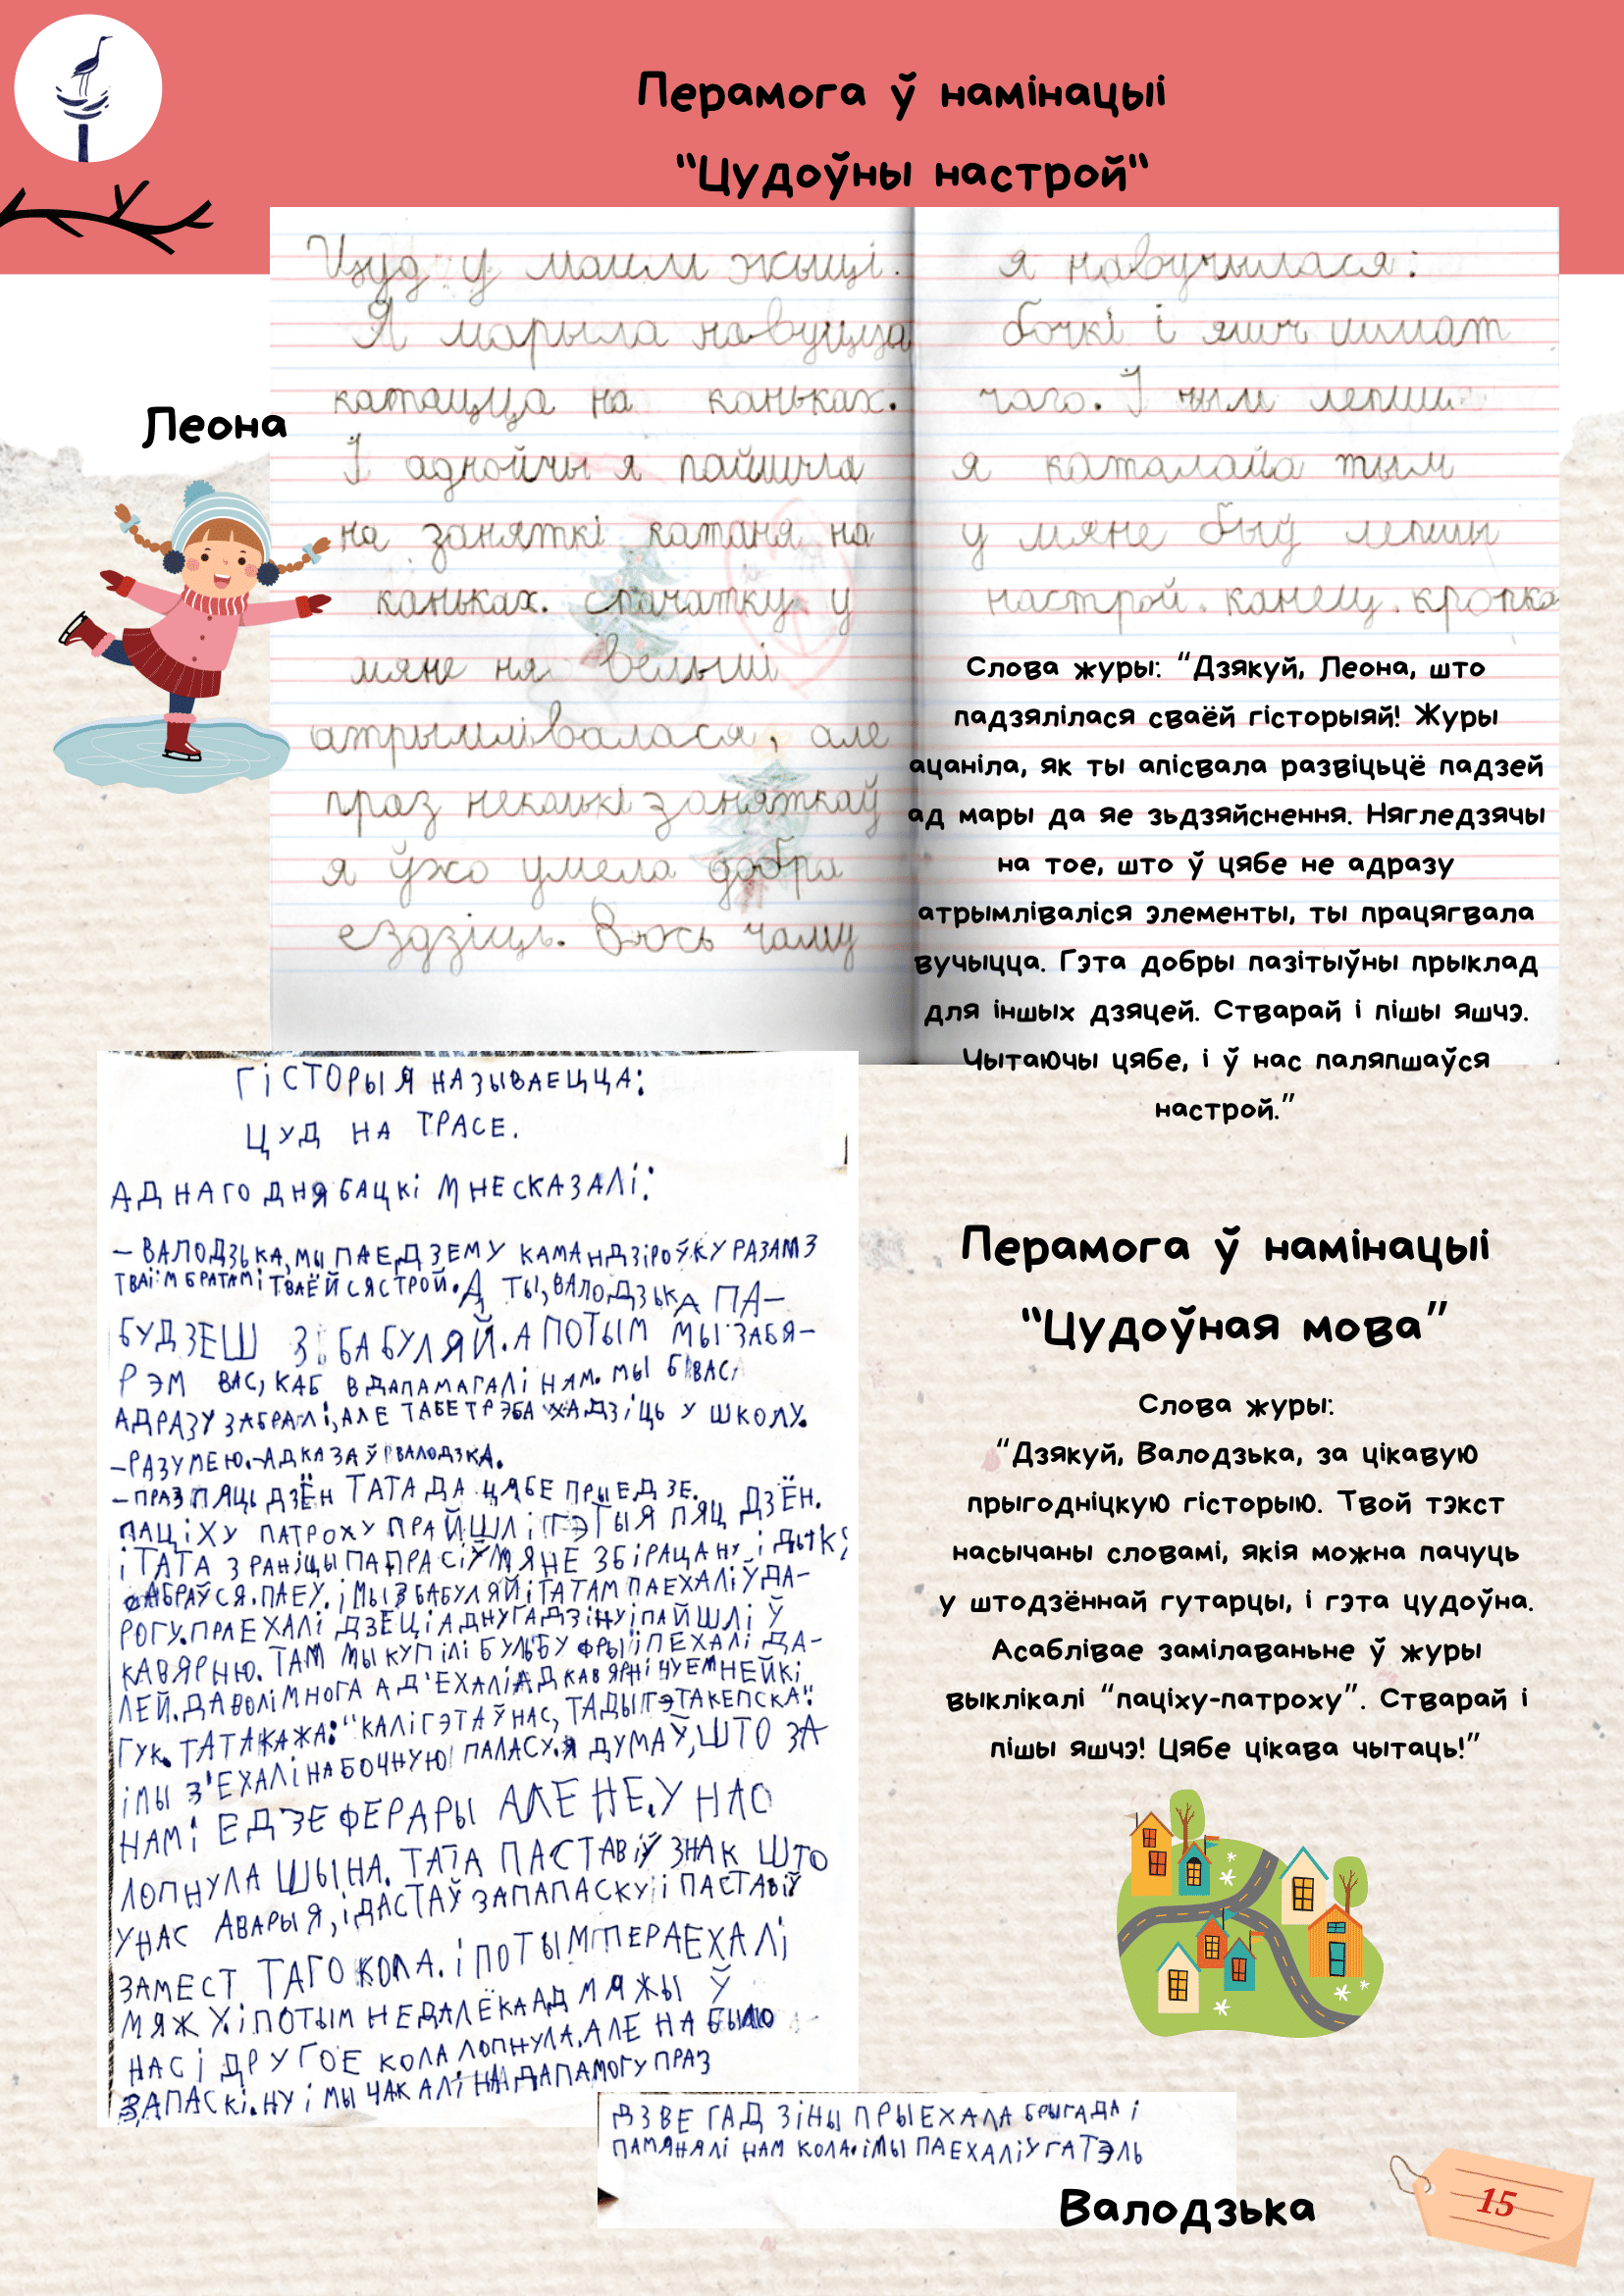 Перамога ў намінацыі
"Цудоўны настрой"
Цуд у маим жыцці.
Я марыла навуцца
катацца на каньках.
І аднойчы я пайшла
на заняткі катаня на
каньках. спачатку у
мяне ня вельмі
атрымлівалася, але
праз некалькі заняткаў
я ўжо умела добра
ездзіць. Вось чаму
я навучылася:
бочкі і яшч шмат
чаго. І чым лепш
я каталайа тым
у мяне быў лепшы
настрой. канец. кропка
Леона
Слова журы: "Дзякуй, Леона, што
падзялілася сваёй гісторыяй! Журы
ацаніла, як ты апісвала развіцьцё падзей
ад мары да яе зьдзяйснення. Нягледзячы
на тое, што ў цябе не адразу
атрымліваліся элементы, ты працягвала
вучыцца. Гэта добры пазітыўны прыклад
для іншых дзяцей. Ствaрай і пішы яшчэ.
Чытаючы цябе, і ў нас паляпшаўся
настрой."
ГІСТОРЫЯ НАЗЫВАЕЦЦА:
ЦУД НА ТРАСЕ.
АДНАГО ДНЯ БАЦКІ МНЕ СКАЗАЛІ:
– ВАЛОДЗЬКА, МЫ ПАЕДЗЕМ У КАМАНДЗІРОЎКУ РАЗАМ З
ТВАІМ БРАТАМ І ТВАЁЙ СЯСТРОЙ. А ТЫ, ВАЛОДЗЬКА ПА–
БУДЗЕШ З БАБУЛЯЙ. А ПОТЫМ МЫ ЗАБЯ–
РЭМ ВАС, КАБ В ДАПАМАГАЛІ НАМ. МЫ Б ВАС
АДРАЗУ ЗАБРАЛІ, АЛЕ ТАБЕ ТРЭБА ХАДЗІЦЬ У ШКОЛУ.
–РАЗУМЕЮ.–АДКАЗАЎ ВАЛОДЗКА.
–ПРАЗ ПЯЦЬ ДЗЁН ТАТА ДА ЦЯБЕ ПРЫЕДЗЕ.
ПАЦІХУ ПАТРОХУ ПРАЙШЛІ ГЭТЫЯ ПЯЦ ДЗЁН.
І ТАТА З РАНІЦЫ ПАПРАСІЎ МЯНЕ ЗБІРАЦА НУ І
АБРАЎСЯ. ПАЕУ. І МЫ З БАБУЛЯЙ І ТАТАМ ПАЕХАЛІ Ў ДА–
РОГУ. ПРАЕХАЛІ ДЗЕЦІ АДНУ ГАДЗІНУ І ПАЙШЛІ Ў
КАВЯРНЮ. ТАМ МЫ КУПІЛІ БУЛЬБУ ФРЫ І ПЕХАЛІ ДА–
ЛЕЙ. ДАВОЛІ МНОГА АД'ЕХАЛІ АД КАВЯРНІ ЧУЕМ НЕЙКІ
ГУК. ТАТА КАЖА: "КАЛІ ГЭТА Ў НАС, ТАДЫ ГЭТА КЕПСКА".
І МЫ З'ЕХАЛІ НА БОЧНУЮ ПАЛАСУ. Я ДУМАЎ, ШТО ЗА
НАМІ ЕДЗЕ ФЕРАРЫ АЛЕ НЕ. У НАС
ЛОПНУЛА ШЫНА. ТАТА ПАСТАВІЎ ЗНАК ШТО
У НАС АВАРЫЯ, І ДАСТАЎ ЗАПАПАСКУ І ПАСТАВІЎ
ЗАМЕСТ ТАГО КОЛА. І ПОТЫМ ПЕРАЕХАЛІ
МЯЖУ. І ПОТЫМ НЕДАЛЁКА АД МЯЖЫ Ў
НАС І ДРУГОЕ КОЛА ЛОПНУЛА. АЛЕ НА БЫЛО
ЗАПАСКІ. НУ І МЫ ЧАКАЛІ НА ДАПАМОГУ ПРАЗ
ДЗВЕ ГАДЗІНЫ ПРЫЕХАЛА БРЫГАДА І
ПАМЯНЯЛІ НАМ КОЛА. І МЫ ПАЕХАЛІ У ГАТЭЛЬ
Перамога ў намінацыі
"Цудоўная мова"
Слова журы:
"Дзякуй, Валодзька, за цікавую
прыгодніцкую гісторыю. Твой тэкст
насычаны словамі, якія можна пачуць
у штодзённай гутарцы, і гэта цудоўна.
Асаблівае замілаваньне ў журы
выклікалі "паціху-патроху". Ствaрай і
пішы яшчэ! Цябе цікава чытаць!"
Валодзька
15